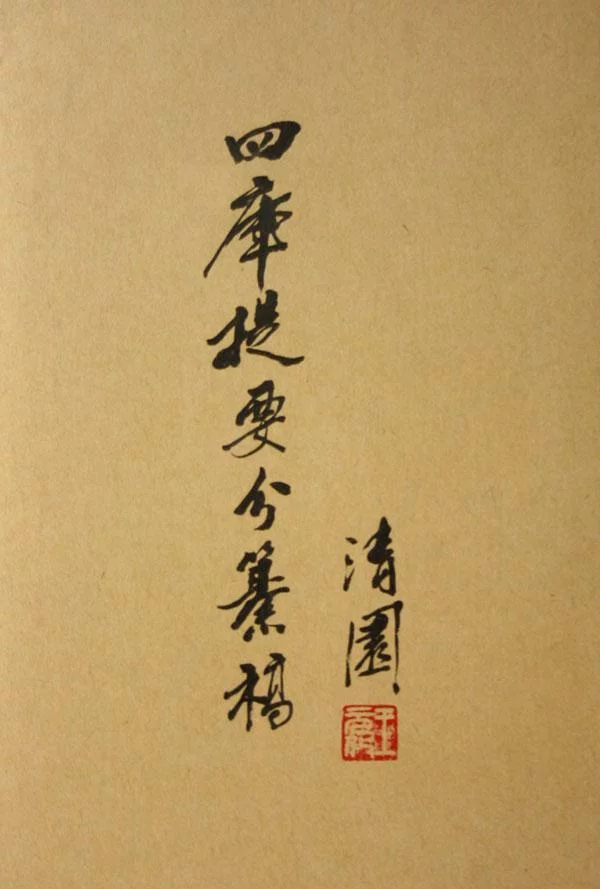 四庫提要分纂稿
清園